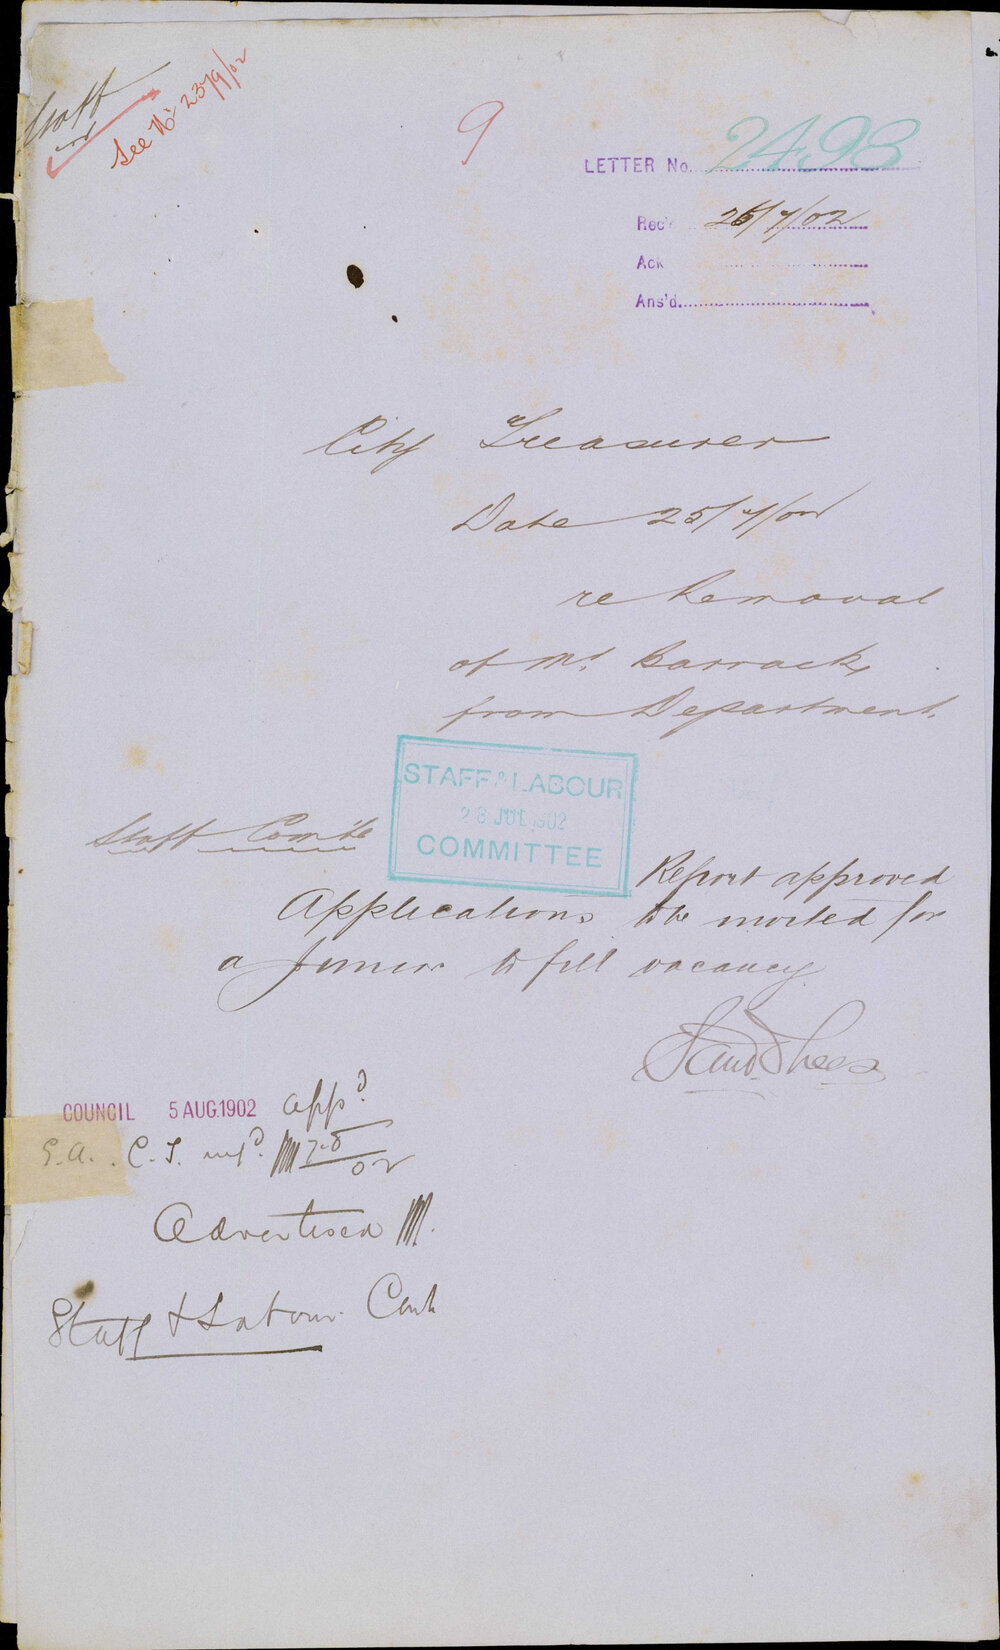 Staff
See No 2379/02
9
LETTER No. 2498
Rec'd 26/7/02
Ack
Ans'd
City Treasurer
Date 25/7/02
re Removal
of Mr. Barrack
from Department.
STAFF & LABOUR
28 JUL 1902
COMMITTEE
Staff Comtte
Report approved
Applications to be invited for
a Junior to fill vacancy
COUNCIL 5 AUG. 1902 appd.
C.T. 7.8/02
Advertised
Staff & Labour